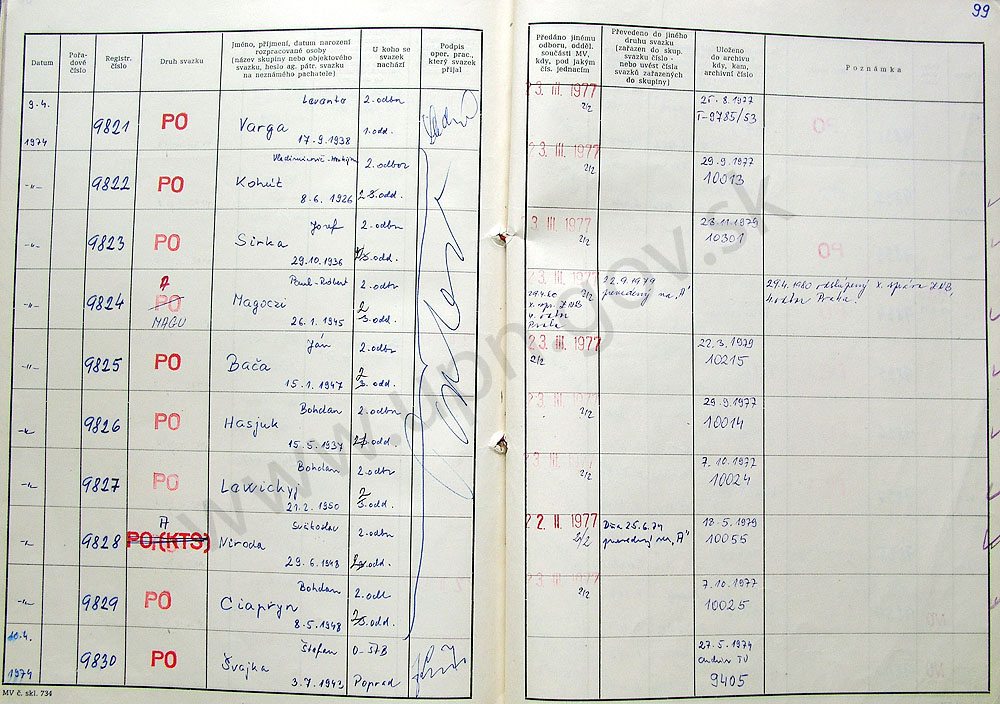 99
Datum
Pořa-
dové
číslo
Registr.
číslo
Druh svazku
Jméno, příjmení, datum narození
rozpracované osoby
(název skupiny nebo objektového
svazku, heslo ag. pátr. svazku
na neznámého pachatele)
U koho se
svazek
nachází
Podpis
oper. prac.,
který svazek
přijal
Předáno jinému
odboru, odděl.
součásti MV,
kdy, pod jakým
čís. jednacím
Převedeno do jiného
druhu svazku
(zařazen do skup.
svazku číslo -
nebo uvést čísla
svazků zařazených
do skupiny)
Uloženo
do archivu
kdy, kam,
archivní číslo
Poznámka
9.4.
1974
9821
PO
Levanta
Varga
17.9.1938
2. odbor
1. odd.
23. III. 1977
2/2
25.8.1977
T-9785/53
-"-
9822
PO
Kohút
8.6.1926
2. odbor
odd.
23. III. 1977
2/2
29.9.1977
10013
-"-
9823
PO
Jozef
Sirka
29.10.1936
2. odbor
odd.
23. III. 1977
2/2
28.11.1979
10301
-"-
9824
A
PO
MAGU
Paul-Robert
Magoczi
26.1.1945
2. odbor
2
odd.
23. III. 1977
2/2
29.4.80
X. spr. ZNB
odbor
Praha
12.9.1979
prevedený na "A"
29.4.1980 odstúpený X. správa ZNB,
Praha.
-"-
9825
PO
Ján
Bača
15.1.1947
2. odbor
2
odd.
23. III. 1977
2/2
22.3.1979
10215
-"-
9826
PO
Bohdan
Hasjuk
15.5.1937
2. odbor
odd.
23. III. 1977
2/2
29.9.1977
10014
-"-
9827
PO
Bohdan
Lawickyj
21.2.1950
2. odbor
2
odd.
23. III. 1977
2/2
7.10.1977
10024
-"-
9828
A
PO,(KTS)
Svätoslav
Niroda
29.6.1948
2. odbor
odd.
22. II. 1977
2/2
Dňa 25.6.74
prevedený na "A"
18.5.1979
10055
-"-
9829
PO
Bohdan
Ciapryn
8.5.1948
2. odb
odd.
23. III. 1977
2/2
7.10.1977
10025
10.4.
1974
9830
PO
Štefan
Švajka
3.7.1943
O-ŠTB
Poprad
27.5.1974
9405
MV č. skl. 734
www.upn.gov.sk